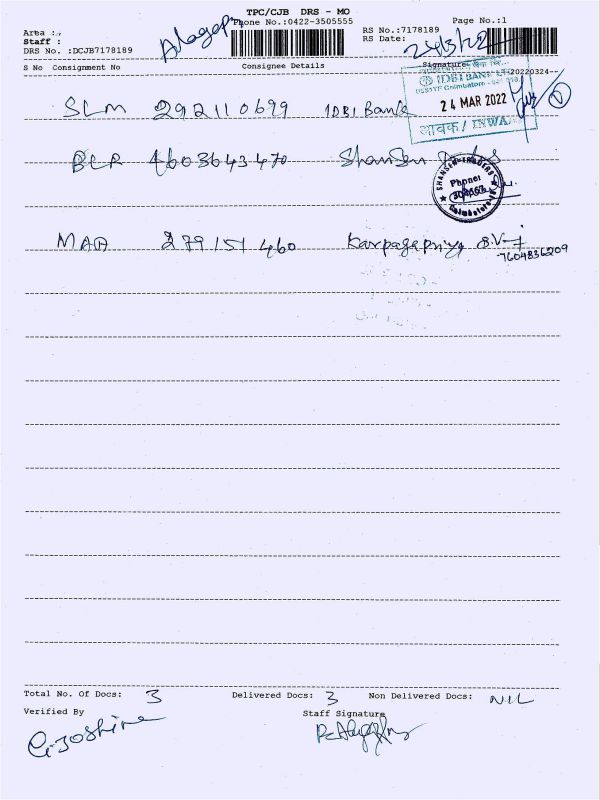 TPC/CJB DRS - MO
Phone No.:0422-3505555
Page No.:1
Area :
Staff :
DRS No. :DCJB7178189
RS No.:7178189
RS Date: 24/3/22
S No Consignment No Consignee Details Signature
20220324
SLM 292110699 IDBI Bank
IDBI BANK LTD
Coimbatore
24 MAR 2022
आवक / INWARD
BLR 4603643470 Shansen
SHANSEN TRADERS
Phone:
Coimbatore
MAA 279151460 Karpagapriya B.V
7604836209
Total No. Of Docs: 3 Delivered Docs: 3 Non Delivered Docs: NIL
Verified By Staff Signature
G. Joshine